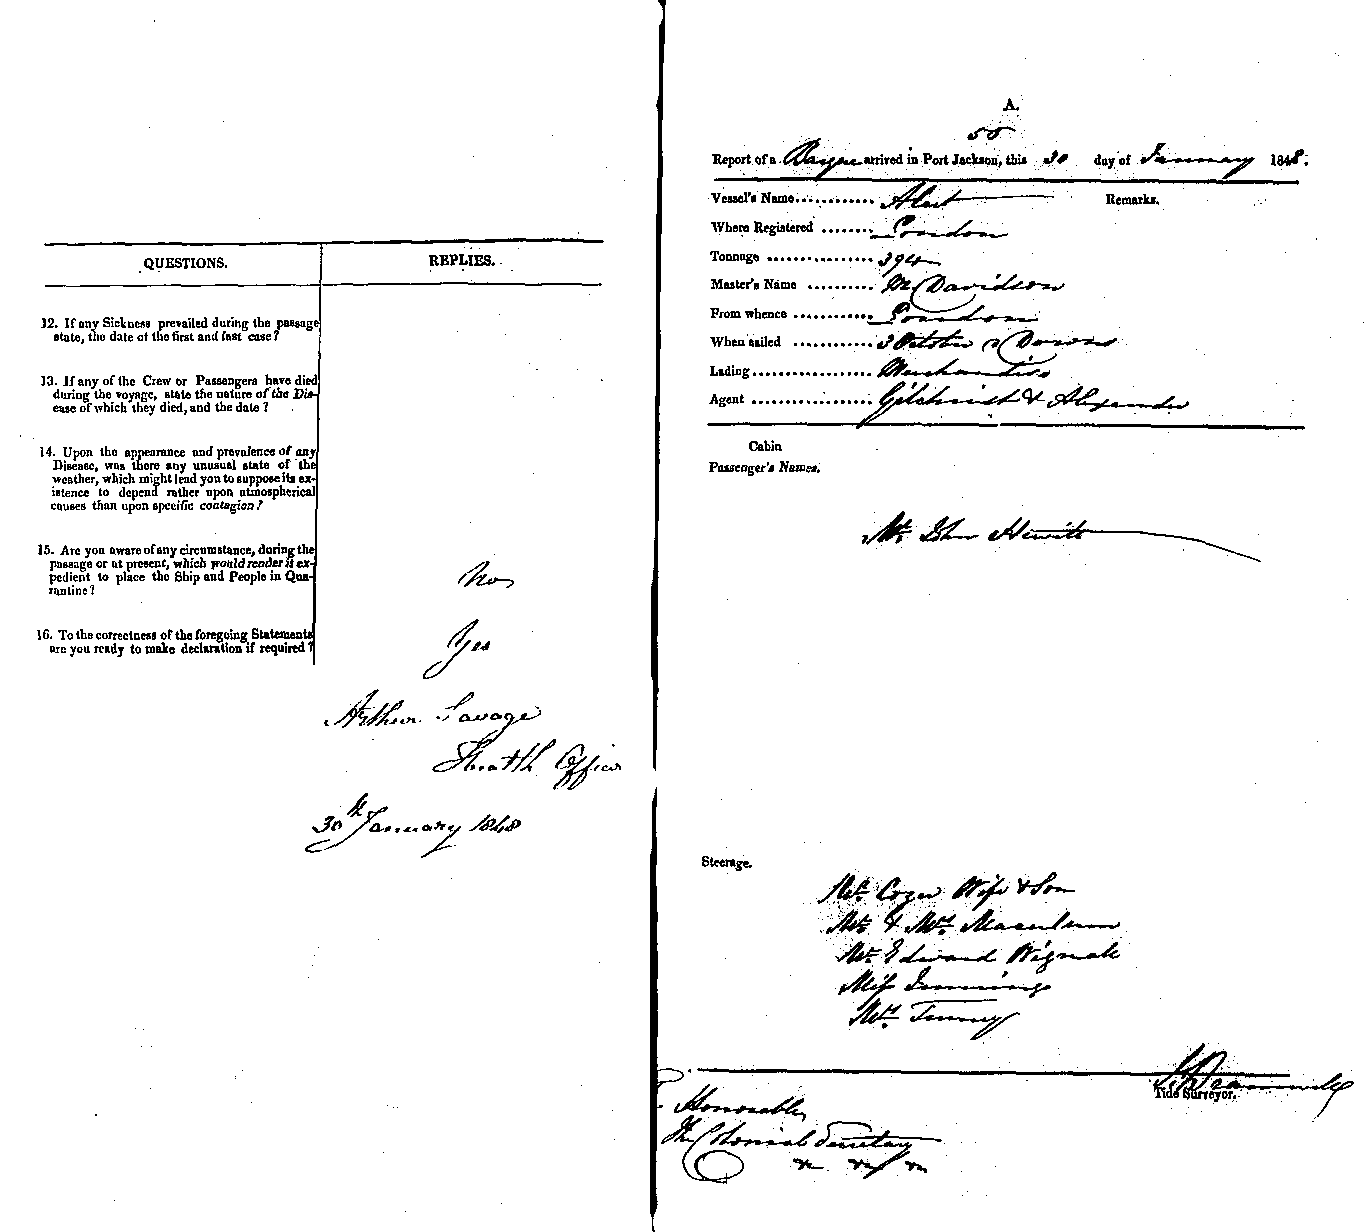 QUESTIONS. REPLIES.
12. If any Sickness prevailed during the passage
state, the date of the first and last case?
13. If any of the Crew or Passengers have died
during the voyage, state the nature of the Dis-
ease of which they died, and the date?
14. Upon the appearance and prevalence of any
Disease, was there any unusual state of the
weather, which might lead you to suppose its ex-
istence to depend rather upon atmospherical
causes than upon specific contagion?
15. Are you aware of any circumstance, during the
passage or at present, which would render it ex-
pedient to place the Ship and People in Qua-
rantine?
No
16. To the correctness of the foregoing Statements
are you ready to make declaration if required?
Yes
Arthur Savage
Health Officer
30th January 1848
A.
58
Report of a Barque arrived in Port Jackson, this 30 day of January 1848.
Vessel's Name............ Alert Remarks.
Where Registered ........ London
Tonnage ................ 394
Master's Name .......... Davidson
From whence ............ London
When sailed ............ 3 October Downs
Lading.................. Merchandise
Agent .................. Gilchrist & Alexander
Cabin
Passenger's Names.
Mr. John Hewitt
Steerage.
Mr. Coger Wife & Son
Mr. & Mrs.
Mr. Edward Wignall
Miss Jennings
Tunny
Tide Surveyor.
Honorable
The Colonial Secretary